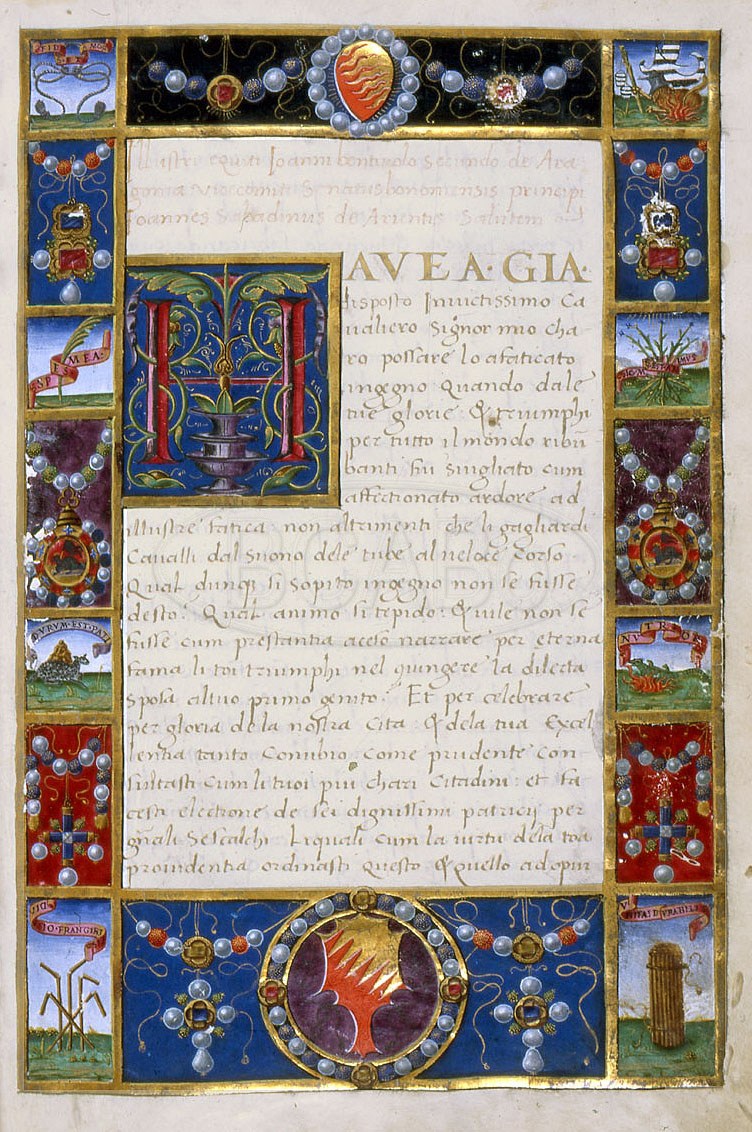 Illustri equiti Ioanni bentiuolo Secundo de Ara
gonia vicecomiti Senatus bononiensis principi
Ioannes Sabadinus de Arientis Salutem
HAVEA·GIA·
disposto Inuictissimo Ca
ualiero Signor mio cha
ro possare lo afaticato
ingegno Quando dale
tue glorie & triumphi
per tutto il mondo ribu
banti fui suigliato cum
affectionato ardore ad
illustre fatica: non altrimenti che li gagliardi
Caualli dal suono dele tube al ueloce Corso
Qual dunq si sopito ingegno non se fusse
desto: Qual animo si tepido: & uile non se
fusse cum prestantia aceso narrare per eterna
fama li toi triumphi nel giungere la dilecta
sposa al tuo primo genito. Et per celebrare
per gloria de la nostra Cita & dela tua Excel
lentia tanto Conubio: come prudente con
sultasti cum li tuoi piu chari Citadini: et fa
cesti electione de sei dignissimi patricij per
gñali Sescalchi Li quali cum la uirtu dela toa
prouidentia ordinasti questo & quello adopur
SPES MEA
DVRVM·EST·PATI
NVTRIOR
IO·FRANGIMI